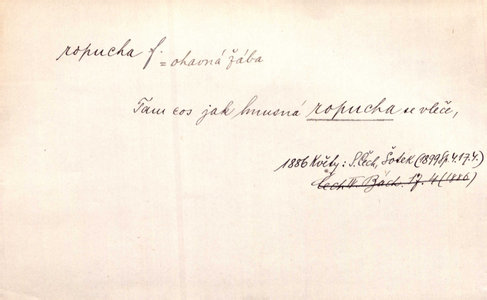 ropucha f. = ohavná žába
Tam cos jak hnusná ropucha se vleče,
1886 Květy: S. Čech, Šotek (1899) 4.17.4.
Čech W. Bách. 17. 4 (1886)